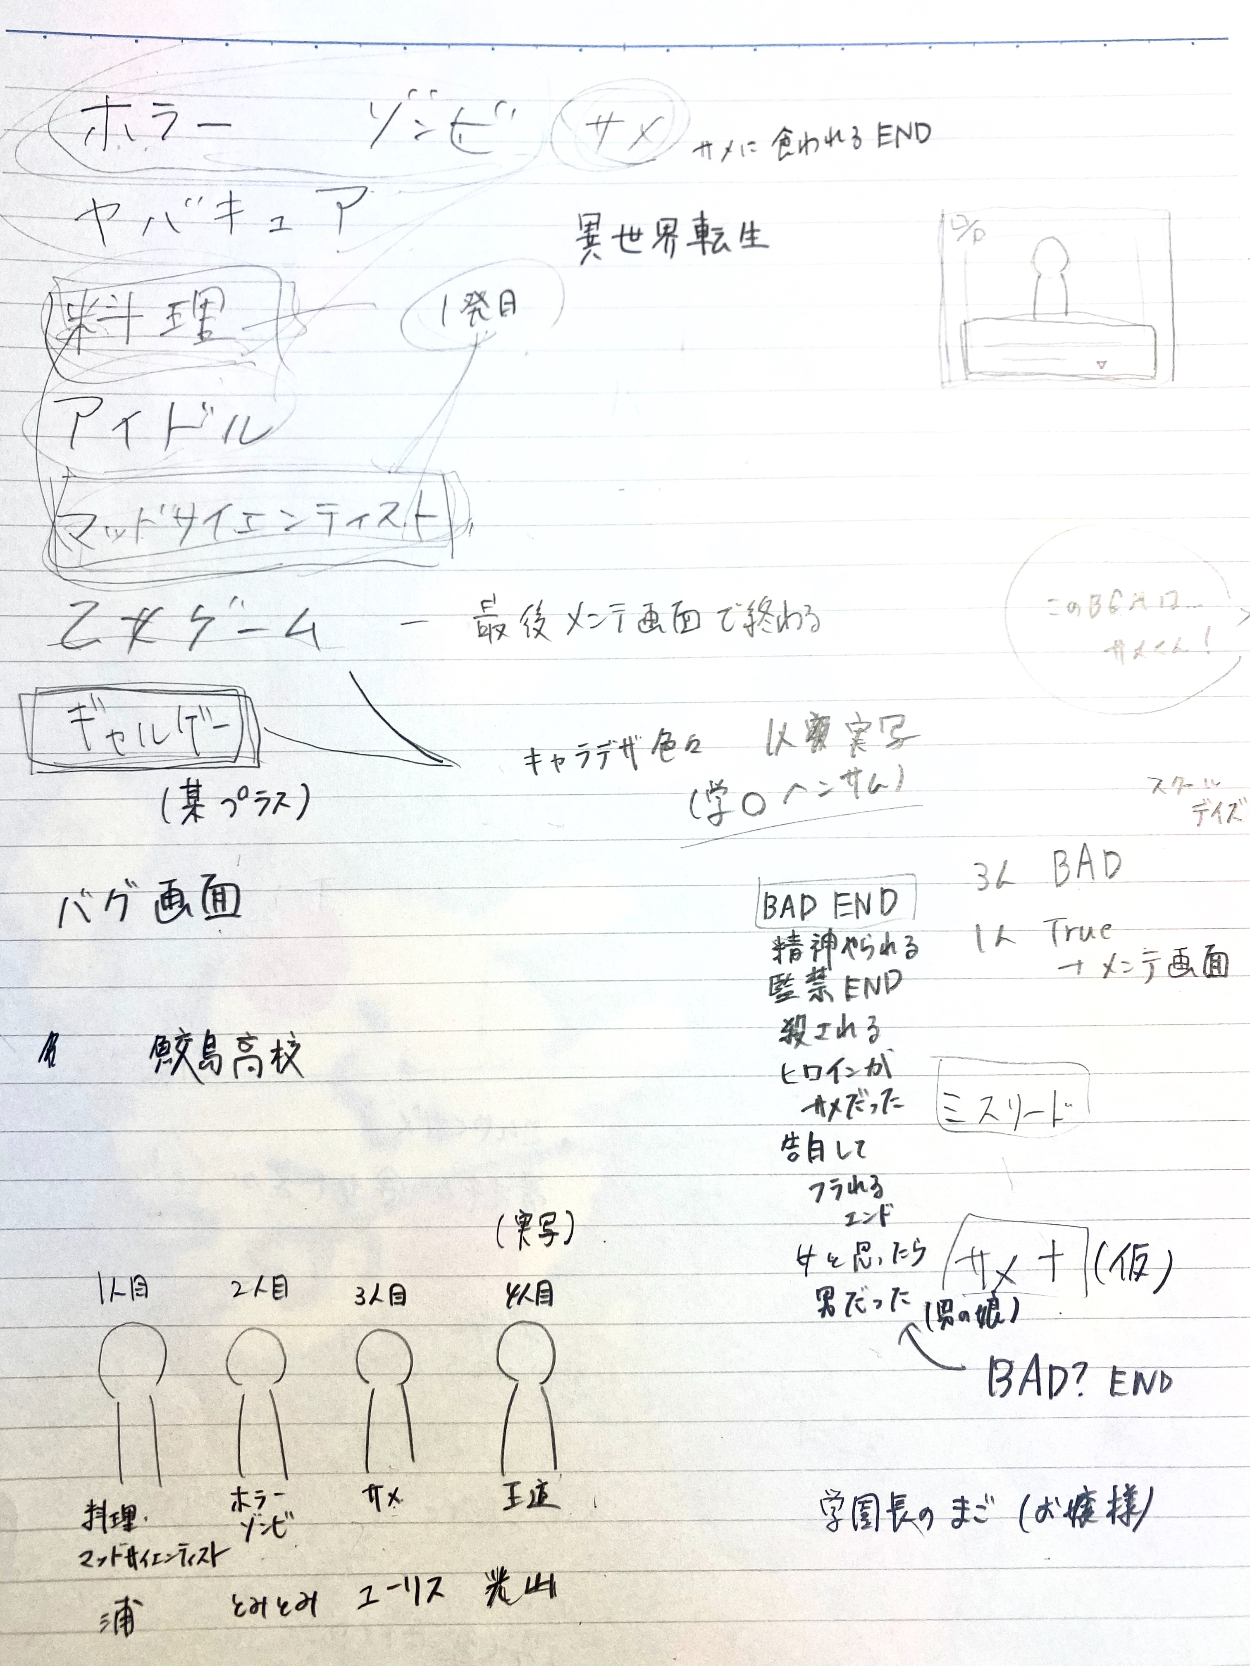 ホラー ゾンビ サメ サメに食われるEND
ヤバキュア
異世界転生
料理
1発目
アイドル
マッドサイエンティスト
乙女ゲーム ー 最後メンテ画面で終わる
このBGMは…
サメくん!
ギャルゲー
(某プラス)
キャラデザ色々 1人実写
(学〇ハンサム)
スクール
デイズ
バグ画面
3人 BAD
1人 True
→メンテ画面
BAD END
精神やられる
監禁END
殺される
ヒロインが
サメだった
告白して
フラれる
エンド
女と思ったら
男だった (男の娘)
BAD? END
ミスリード
サメ+ (仮)
鮫島高校
(実写)
1人目 2人目 3人目 4人目
料理・
マッドサイエンティスト
ホラー
ゾンビ
サメ
王道
浦 とみとみ ユーリス 光山
学園長のまご (お嬢様)